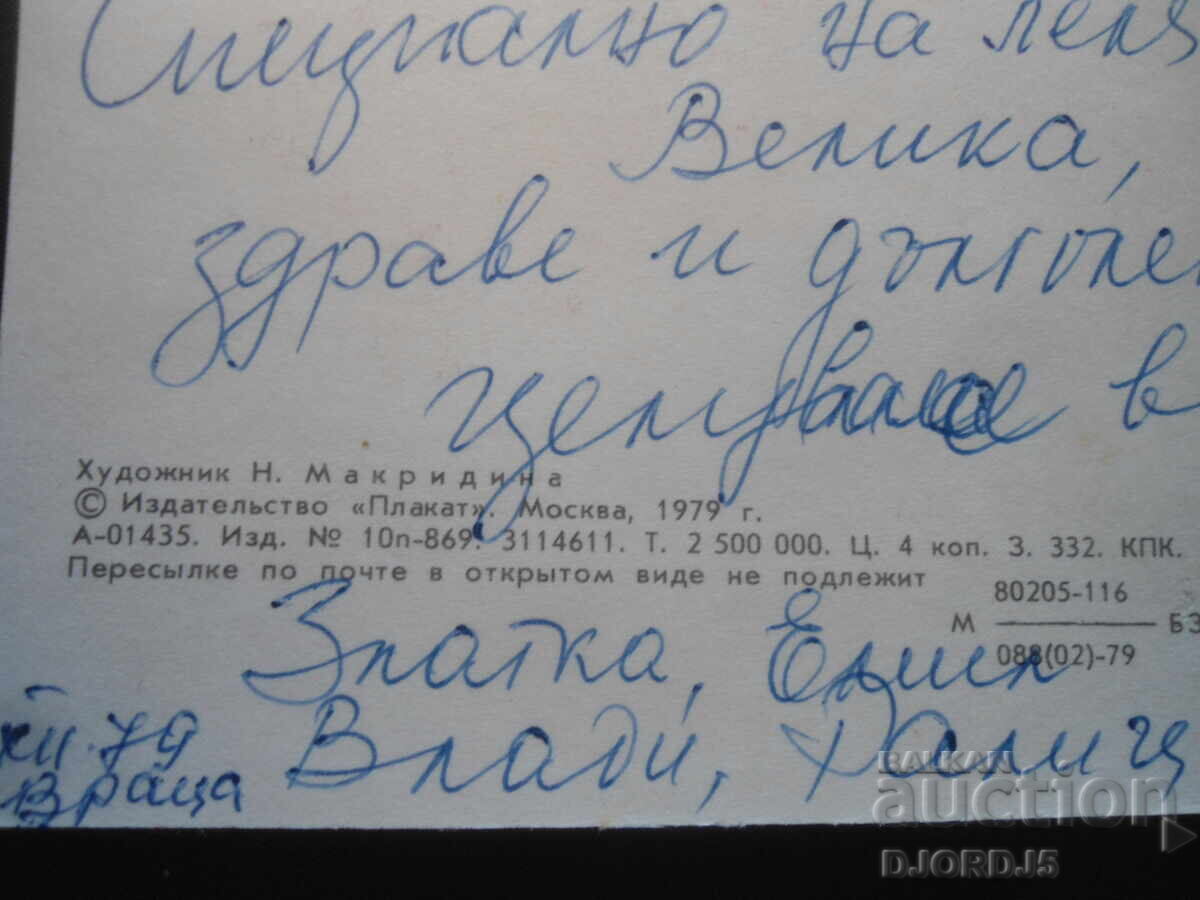 Специално на леля
Велика,
здраве и дълголе
целуваме в
Художник Н. Макридина
© Издательство «Плакат». Москва, 1979 г.
А-01435. Изд. № 10п-869. 3114611. Т. 2 500 000. Ц. 4 коп. З. 332. КПК.
Пересылке по почте в открытом виде не подлежит
М 80205-116 БЗ
088(02)-79
Златка, Емил
XII.79 Влади, Ралиц
Враца
BALKAN
auction
DJORDJ5